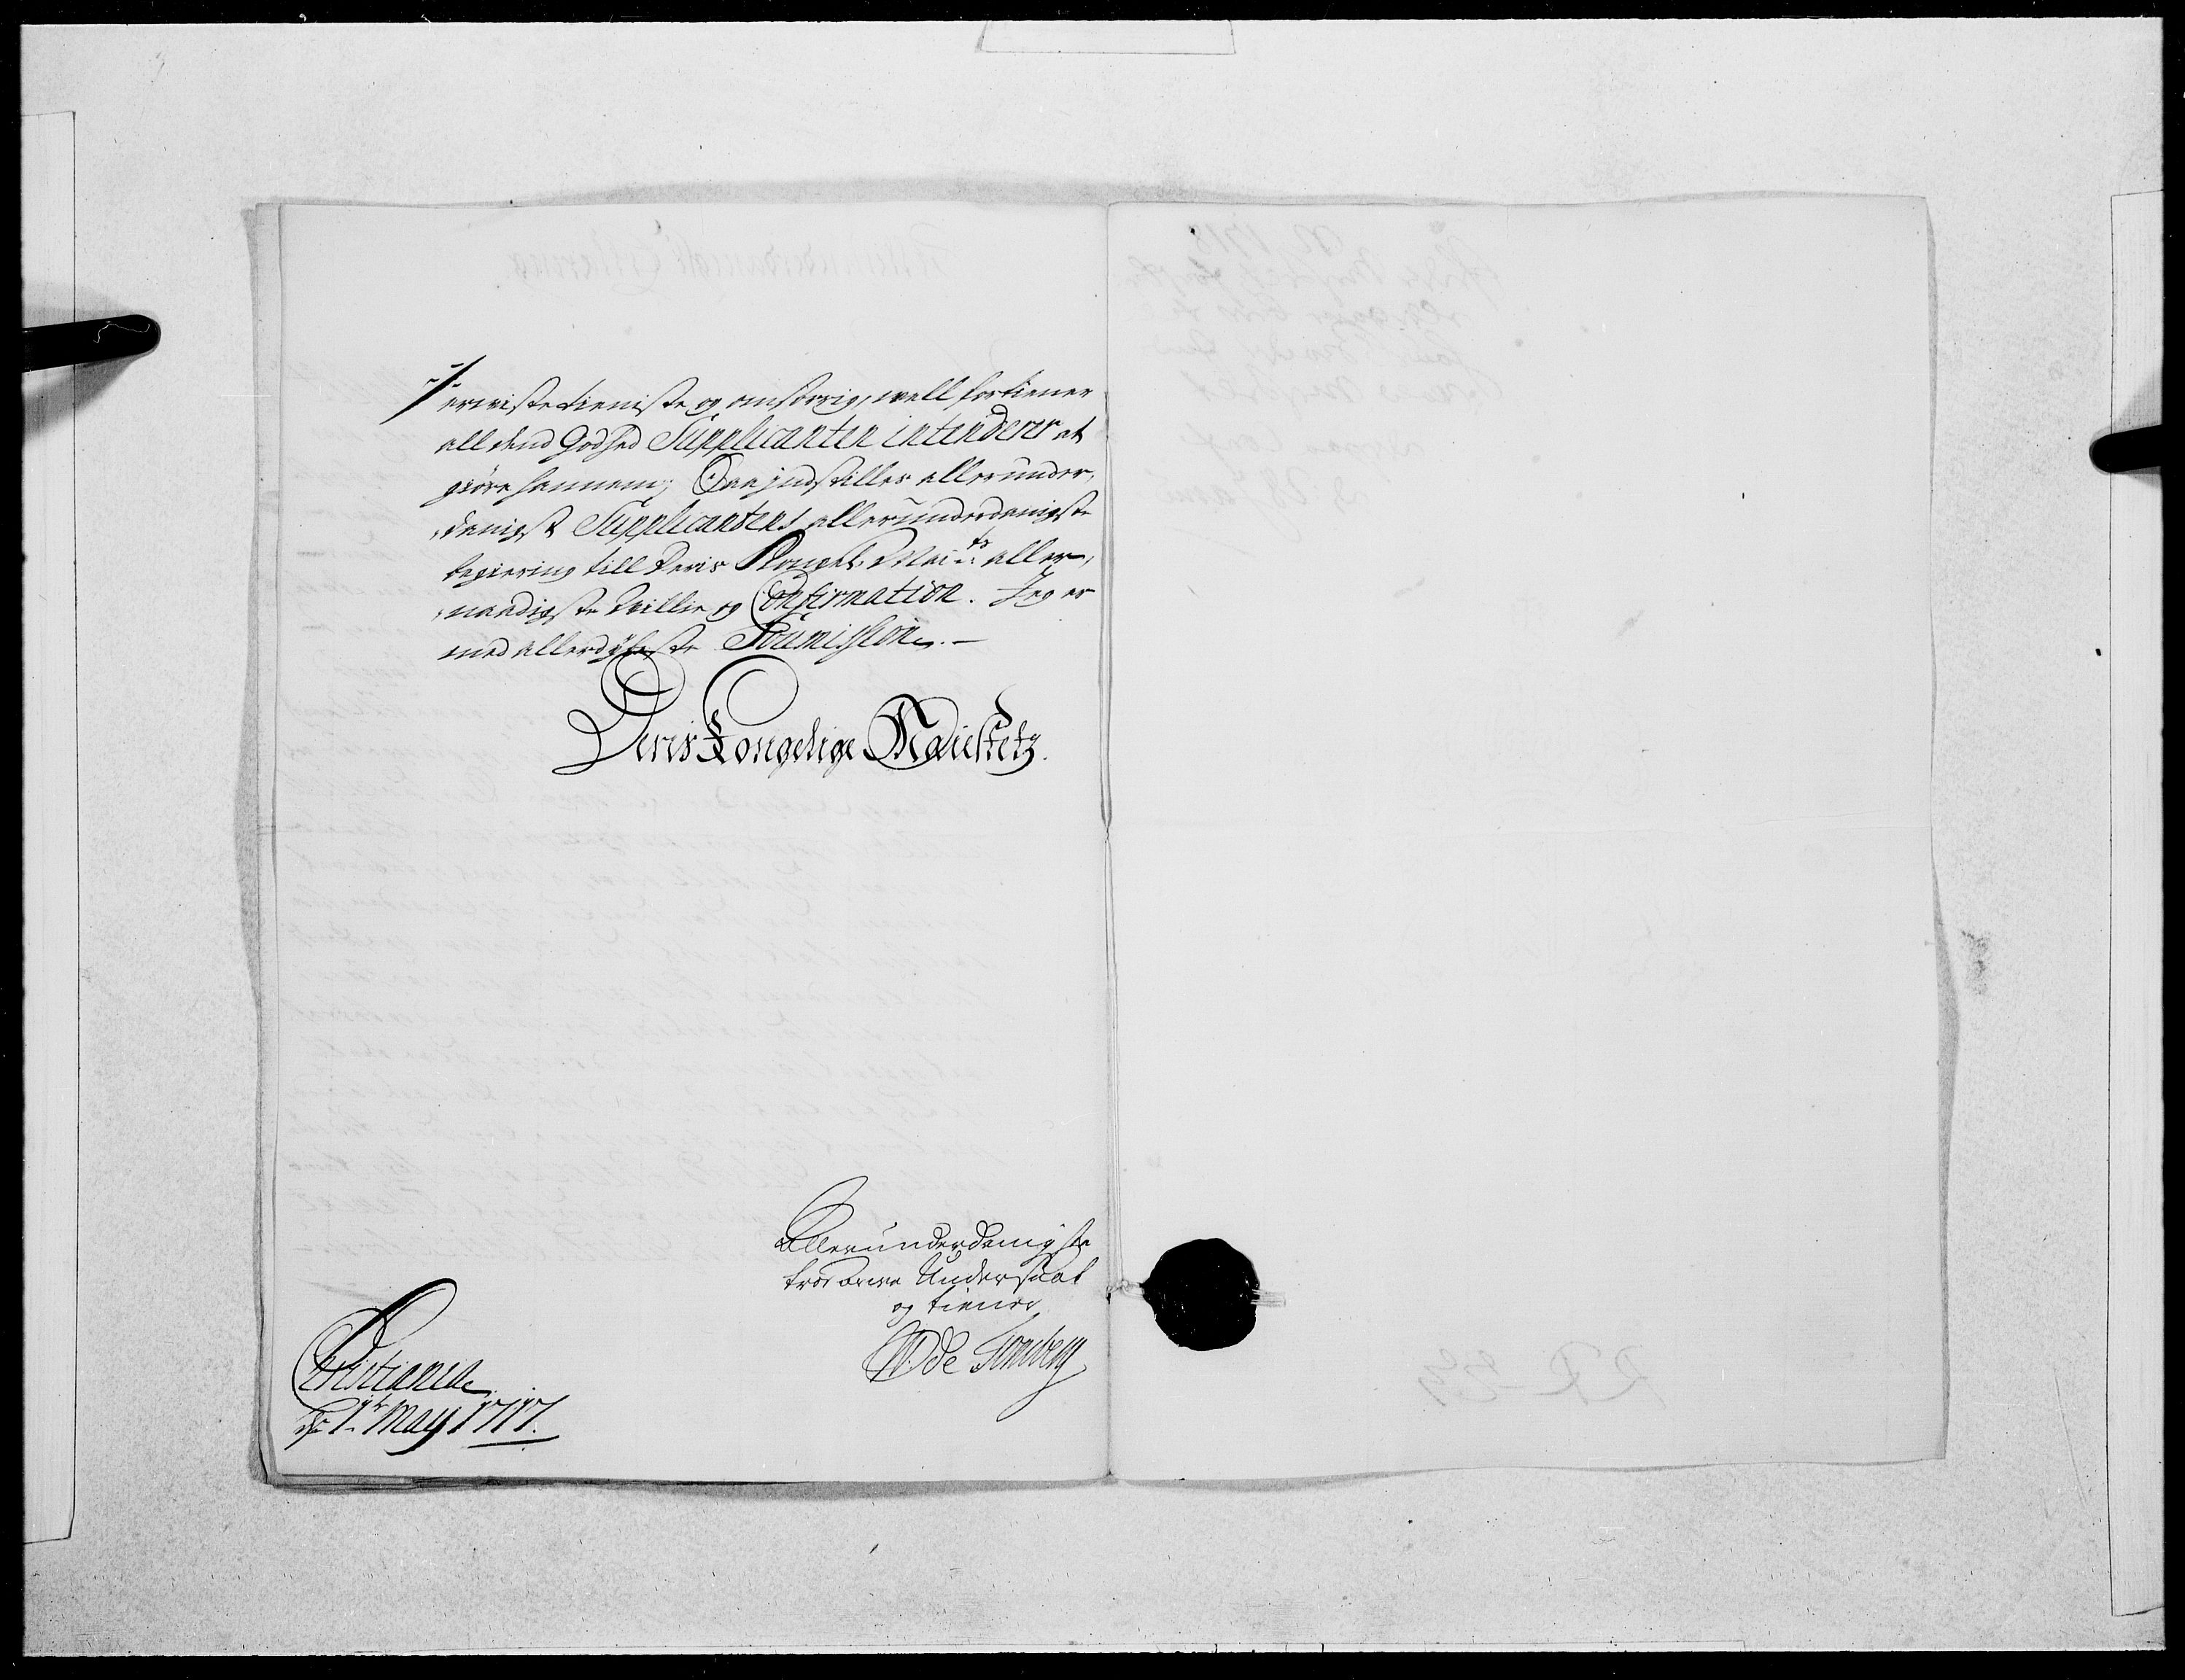 -/-
erviste tieniste og omsorrig, well fortiener
all dend Godhed Supplicanten intenderer at
giöre hannem; Saa indstilles allerunder,
,danigst Supplicantens allerunderdanigste
begiering till Deris Kongel. Mai:ts aller,
,naadigste Willie og Confirmation. Jeg er
med allerdybeste Soumission.
Deris Kongelige Maiestetz.
Allerunderdanigste
troe Undersaat
og tiener
de Tonsberg
Christiania
d. 1te May 1717.